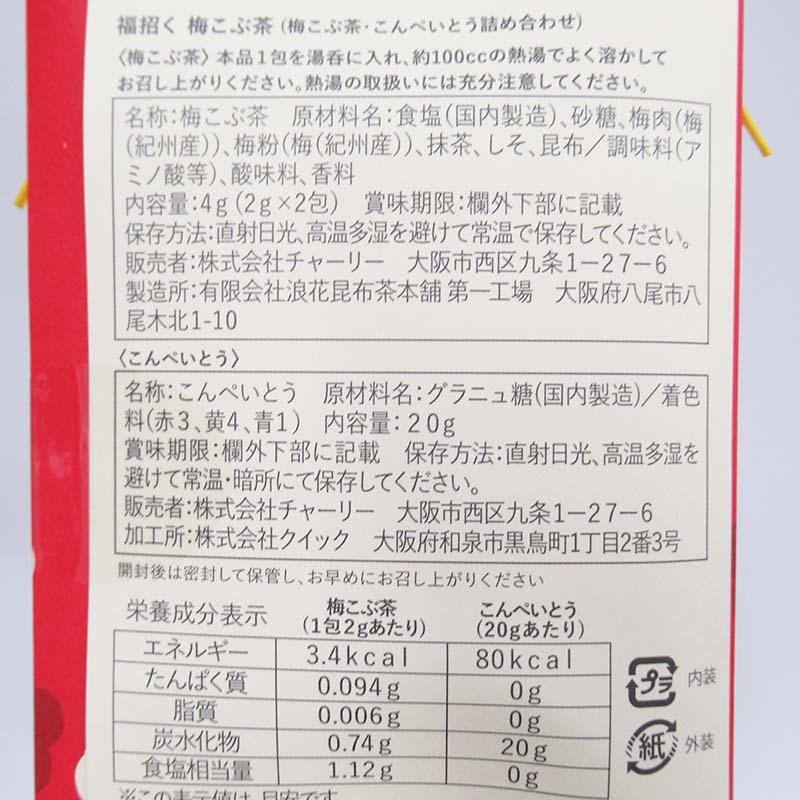 福招く 梅こぶ茶 (梅こぶ茶・こんぺいとう詰め合わせ)
〈梅こぶ茶〉本品1包を湯呑に入れ、約100ccの熱湯でよく溶かして
お召し上がりください。熱湯の取扱いには充分注意してください。
名称:梅こぶ茶　原材料名:食塩(国内製造)、砂糖、梅肉(梅
(紀州産))、梅粉(梅(紀州産))、抹茶、しそ、昆布／調味料(ア
ミノ酸等)、酸味料、香料
内容量:4g(2g×2包)　賞味期限:欄外下部に記載
保存方法:直射日光、高温多湿を避けて常温で保存してください。
販売者:株式会社チャーリー　大阪市西区九条1-27-6
製造所:有限会社浪花昆布茶本舗 第一工場　大阪府八尾市八
尾木北1-10
〈こんぺいとう〉
名称:こんぺいとう　原材料名:グラニュ糖(国内製造)／着色
料(赤3、黄4、青1)　内容量:20g
賞味期限:欄外下部に記載　保存方法:直射日光、高温多湿を
避けて常温・暗所にて保存してください。
販売者:株式会社チャーリー　大阪市西区九条1-27-6
加工所:株式会社クイック　大阪府和泉市黒鳥町1丁目2番3号
開封後は密封して保管し、お早めにお召し上がりください
栄養成分表示 梅こぶ茶 (1包2gあたり) こんぺいとう (20gあたり)
エネルギー 3.4kcal 80kcal
たんぱく質 0.094g 0g
脂質 0.006g 0g
炭水化物 0.74g 20g
食塩相当量 1.12g 0g
プラ 内装
紙 外装
※この表示値は、目安です